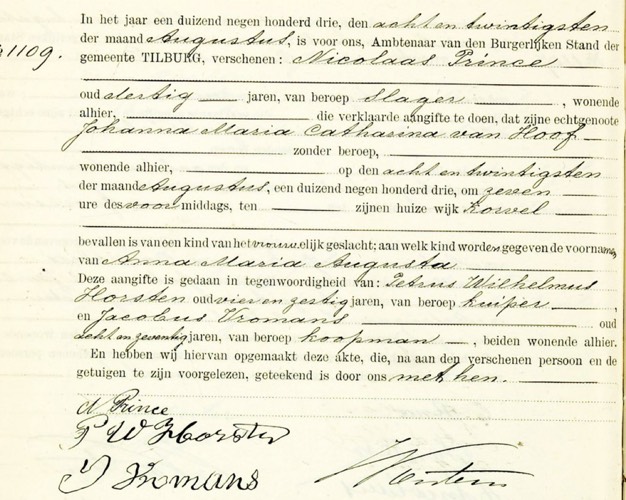 In het jaar een duizend negen honderd drie, den acht en twintigsten
der maand Augustus, is voor ons, Ambtenaar van den Burgerlijken Stand der
1109. gemeente TILBURG, verschenen: Nicolaas Prince
oud dertig jaren, van beroep slager, wonende
alhier, die verklaarde aangifte te doen, dat zijne echtgenoote
Johanna Maria Catharina van Hoof
zonder beroep,
wonende alhier, op den acht en twintigsten
der maand Augustus, een duizend negen honderd drie, om zeven
ure des voor middags, ten zijnen huize wijk Korvel
bevallen is van een kind van het vrouwelijk geslacht; aan welk kind worden gegeven de voorname,
van Anna Maria Augusta
Deze aangifte is gedaan in tegenwoordigheid van: Petrus Wilhelmus
Horsten oud vier en zestig jaren, van beroep kuiper,
en Jacobus Vromans oud
acht en zeventig jaren, van beroep koopman, beiden wonende alhier.
En hebben wij hiervan opgemaakt deze akte, die, na aan den verschenen persoon en de
getuigen te zijn voorgelezen, geteekend is door ons met hen.
N Prince
P W Horsten
J Vromans